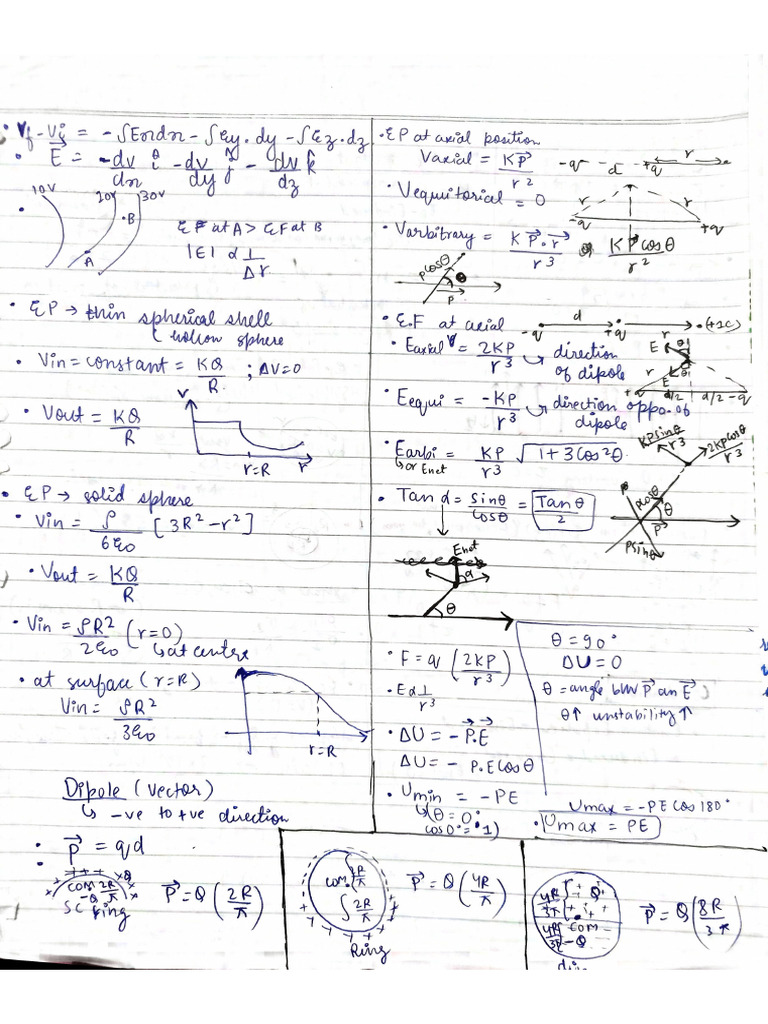 • Vf - Vi = -∫Exdx - ∫Ey.dy - ∫Ez.dz
• E⃗ = -dv/dx î - dv/dy ĵ - dv/dz k̂
10V 20V 30V
•B
A
EF at A > EF at B
|E| α 1/Δr
• EP → thin spherical shell
(hollow sphere
• Vin = constant = KQ/R ; ΔV=0
• Vout = KQ/R
V
r=R r
• EP → solid sphere
• Vin = ρ/6ε0 [3R² - r²]
• Vout = KQ/R
• Vin = ρR²/2ε0 (r=0)
↳ at centere
• at surface (r=R)
Vin = ρR²/3ε0
r=R
Dipole (vector)
↳ -ve to +ve direction
• P⃗ = qd
+ + + +Q
com 2R/π
-Q
SC Ring
P⃗ = Q (2R/π)
• EP at axial position
Vaxial = KP⃗/r²
-q - d - +q r
• Vequitorial = 0
r r
-q +q
• Varbitrary = K P⃗.r⃗/r³ or KPcosθ/r²
Pcosθ
θ
P
• E.F at axial
d r
-q +q •(+1C)
• Eaxial = 2KP/r³ ↳ direction of dipole
E θ
r
E
+q d/2 d/2 -q
• Eequi = -KP/r³ ↳ direction oppo. of dipole
• Earbi = KP/r³ √1+3cos²θ
↳ or Enet
KPsinθ/r³ 2KPcosθ/r³
• Tan α = sinθ/cosθ = Tanθ/2
Pcosθ
θ
P
Psinθ
Enet
α
θ
• F = q (2KP/r³)
• E α 1/r³
• ΔU = -P⃗.E⃗
ΔU = - P.Ecosθ
• Umin = -PE
↳ (θ = 0°
cos0° = 1)
θ = 90°
ΔU = 0
θ = angle b/w P⃗ an E⃗
θ↑ unstability↑
Umax = -PE cos 180°
• Umax = PE
com 2R/π
2R/π
Ring
P⃗ = Q (4R/π)
4R/3π + + Q
4R/3π com
-Q
P⃗ = Q (8R/3π)